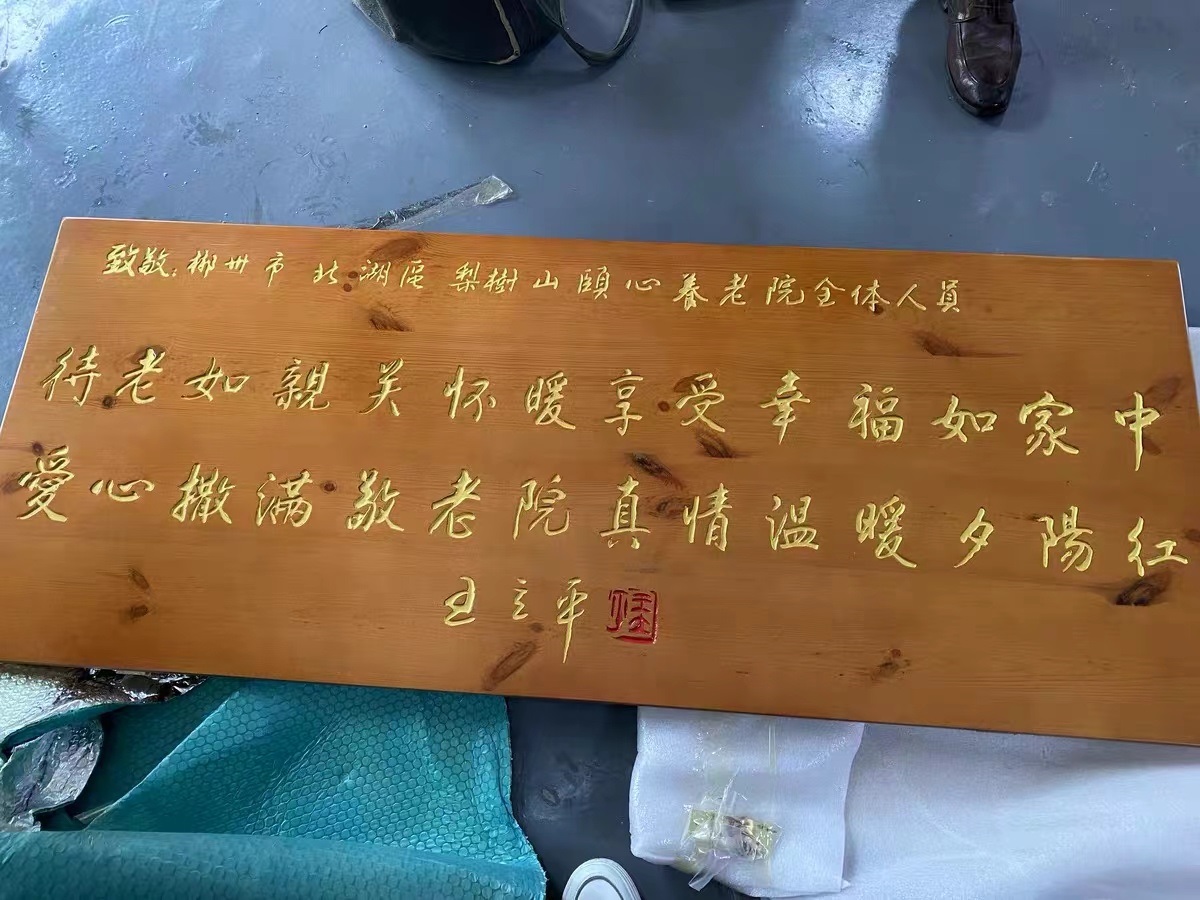 致敬:郴州市北湖区梨樹山頤心養老院全体人員
待老如親关怀暖享受幸福如家中
愛心撒满敬老院真情温暖夕陽红
王立平